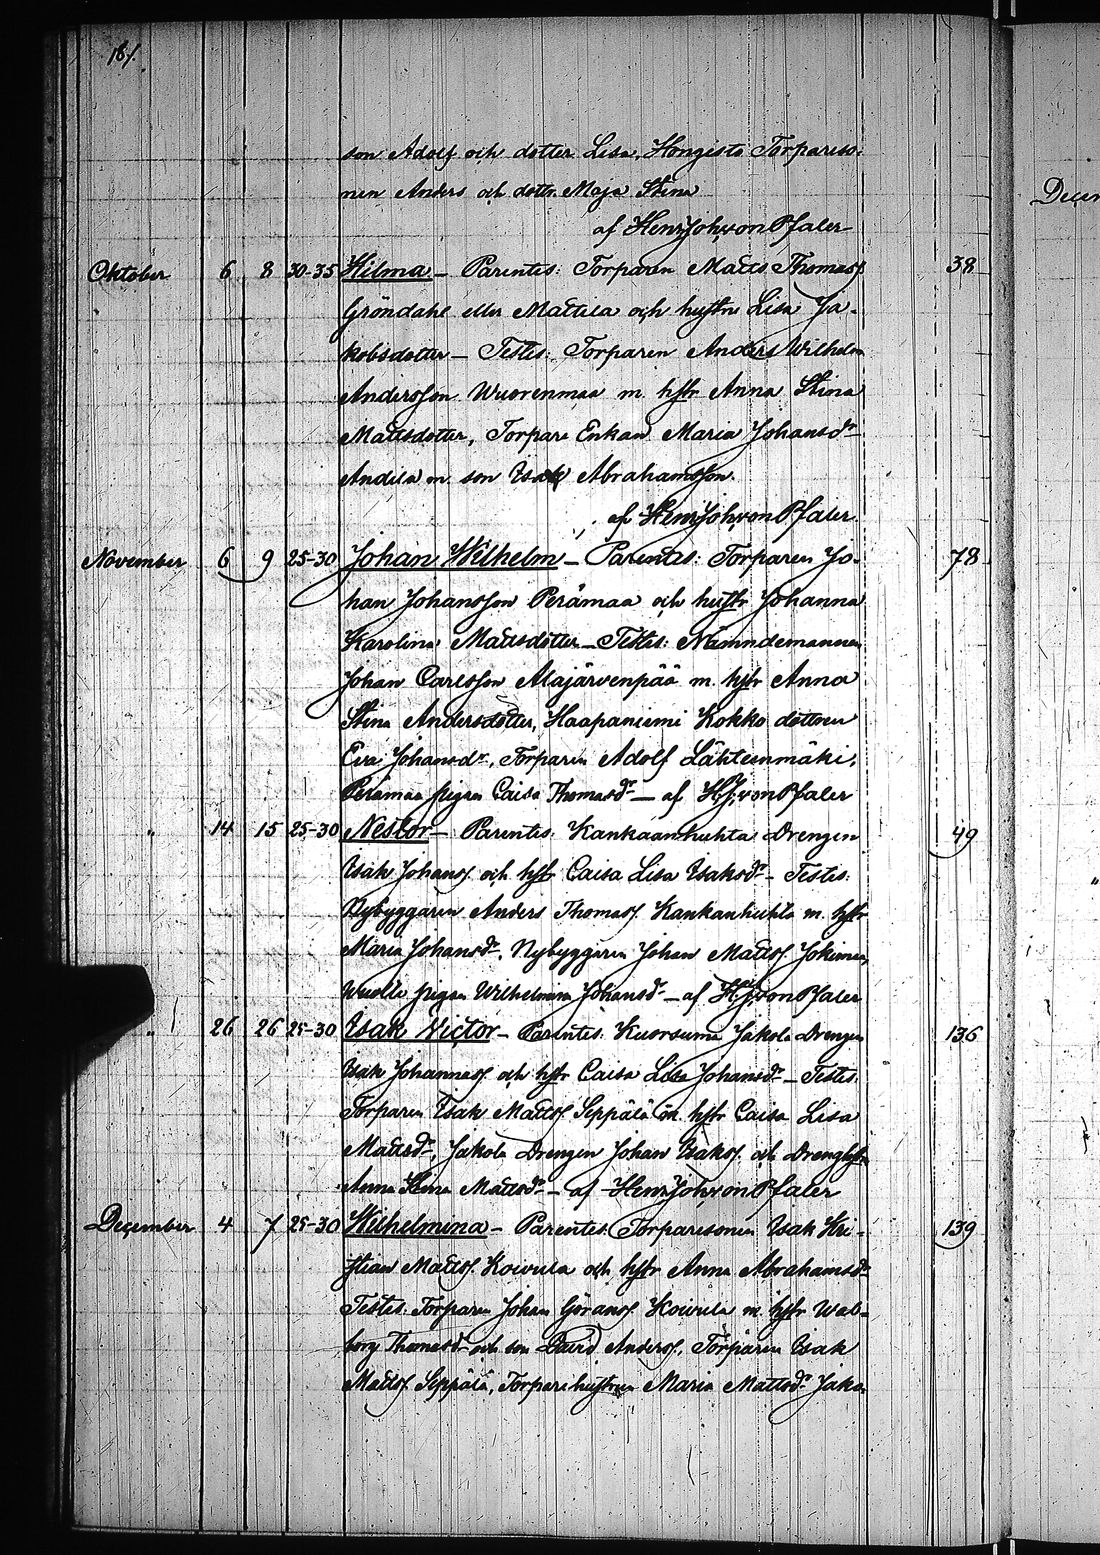 181.
son Adolf och dotter Lisa, Hongisto Torpareso-
nen Anders och dottr. Maja Stina
af Henr. Joh. von Pfaler
Decem
Oktober 6 8 30-35 Hilma – Parentes: Torparen Matts Thomass. 38
Gröndahl eller Mattila och hustru Lisa Ja-
kobsdotter – Testes: Torparen Anders Wilhelm
Andersson Wuorenmaa m. hstr Anna Stina
Mattsdotter, Torpare Enkan Maria Johansdr
Andila m. son Isak Abrahamsson.
af Henr. Joh. von Pfaler.
November 6 9 25-30 Johan Wilhelm – Parentes: Torparen Jo- 78
han Johansson Perämaa och hustr Johanna
Karolina Mattsdotter – Testes: Nämndemannen
Johan Carlsson Alajärvenpää m. hstr Anna
Stina Andersdotter, Haapaniemi Kokko dottren
Eva Johansdr, Torparen Adolf Lähteenmäki,
Perämaa pigan Caisa Thomasdr – af H. J. von Pfaler
" 14 15 25-30 Nestor – Parentes: Kankaanhuhta Drengen 49
Isak Johans. och hstr Caisa Lisa Isaksdr – Testes:
Nybyggaren Anders Thomass. Kankanhuhta m. hstr
Maria Johansdr, Nybyggaren Johan Mattss. Jokinen,
pigan Wilhelmina Johansdr – af H. J. von Pfaler
" 26 26 25-30 Isak Victor – Parentes: Kuorsuma Jakola Drengen 136
Isak Johannes. och hstr Caisa Lisa Johansdr – Testes:
Torparen Isak Mattss. Seppälä m. hstr Caisa Lisa
Mattsdr, Jakola Drengen Johan Isakss. och Drenghstr
Anna Stina Mattsdr – af Henr. Joh. von Pfaler
December 4 7 25-30 Wilhelmina – Parentes: Torparesonen Isak Kri- 139
stian Mattss. Koivula och hstr Anna Abrahamsdr
Testes: Torparen Johan Görans. Koivula m. hstr Wal-
borg Thomasdr och son David Anderss., Torparen Isak
Mattss. Seppälä, Torpare hustrun Maria Mattsdr Jako-